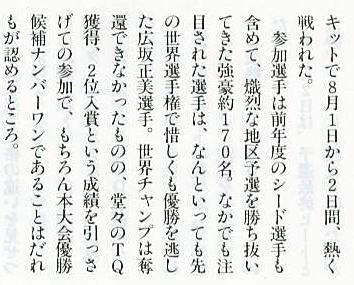 キットで8月1日から2日間、熱く
戦われた。
　参加選手は前年度のシード選手も
含めて、熾烈な地区予選を勝ち抜い
てきた強豪約170名。なかでも注
目された選手は、なんといっても先
の世界選手権で惜しくも優勝を逃し
た広坂正美選手。世界チャンプは奪
還できなかったものの、堂々のTQ
獲得、2位入賞という成績を引っさ
げての参加で、もちろん本大会優勝
候補ナンバーワンであることはだれ
もが認めるところ。